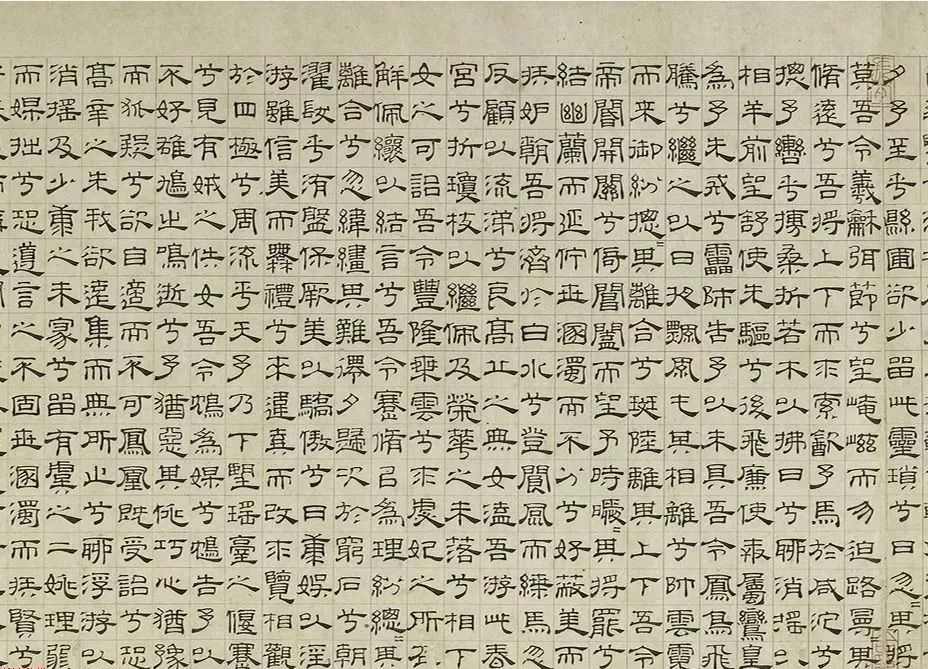 夕予至乎縣圃欲少留此靈瑣兮日忽=其將
莫吾令羲龢弭節兮望崦嵫而勿迫路曼=其
脩遠兮吾將上下而求索歠予馬於咸沱兮
揔予轡乎榑桑折若木以拂日兮聊消搖以
相羊前望舒使先驅兮後飛廉使奔屬鸞皇
為予先戒兮靁師告予以未具吾令鳳鳥飛
騰兮繼之以日夜飄風屯其相離兮帥雲霓
而來御紛揔=其離合兮斑陸離其上下吾令
帝閽開關兮倚閶闔而望予時曖=其將罷兮
結幽蘭而延佇世溷濁而不分兮好蔽美而
嫉妒朝吾將濟於白水兮登閬風而緤馬忽
反顧以流涕兮哀高丘之無女溘吾游此春
宮兮折瓊枝以繼佩及榮華之未落兮相下
女之可詒吾令豐隆乘雲兮求虙妃之所在
解佩纕以結言兮吾令蹇脩以為理紛總=其
離合兮忽緯繣其難遷夕歸次於窮石兮朝
濯髮乎洧盤保厥美以驕傲兮日康娛以淫
游雖信美而無禮兮來違棄而改求覽相觀
於四極兮周流乎天予乃下望瑤臺之偃蹇
兮見有娀之佚女吾令鴆為媒兮鴆告予以
不好雄鳩之鳴逝兮予猶惡其佻巧心猶豫
而狐疑兮欲自適而不可鳳凰既受詒兮恐
高辛之先我欲遠集而無所止兮聊浮游以
消搖及少康之未家兮留有虞之二姚理弱
而媒拙兮恐導言之不固世溷濁而嫉賢兮